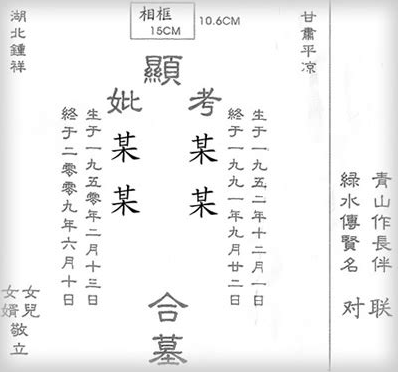 青山作長伴
綠水傳賢名
对联
相框
15CM
10.6CM
甘肅平凉
顯
考
某某
生于一九五二年十二月一日
終于一九九一年九月廿二日
妣
某某
生于一九五零年二月十三日
終于二零零九年六月十日
合墓
湖北鍾祥
女兒
女婿
敬立